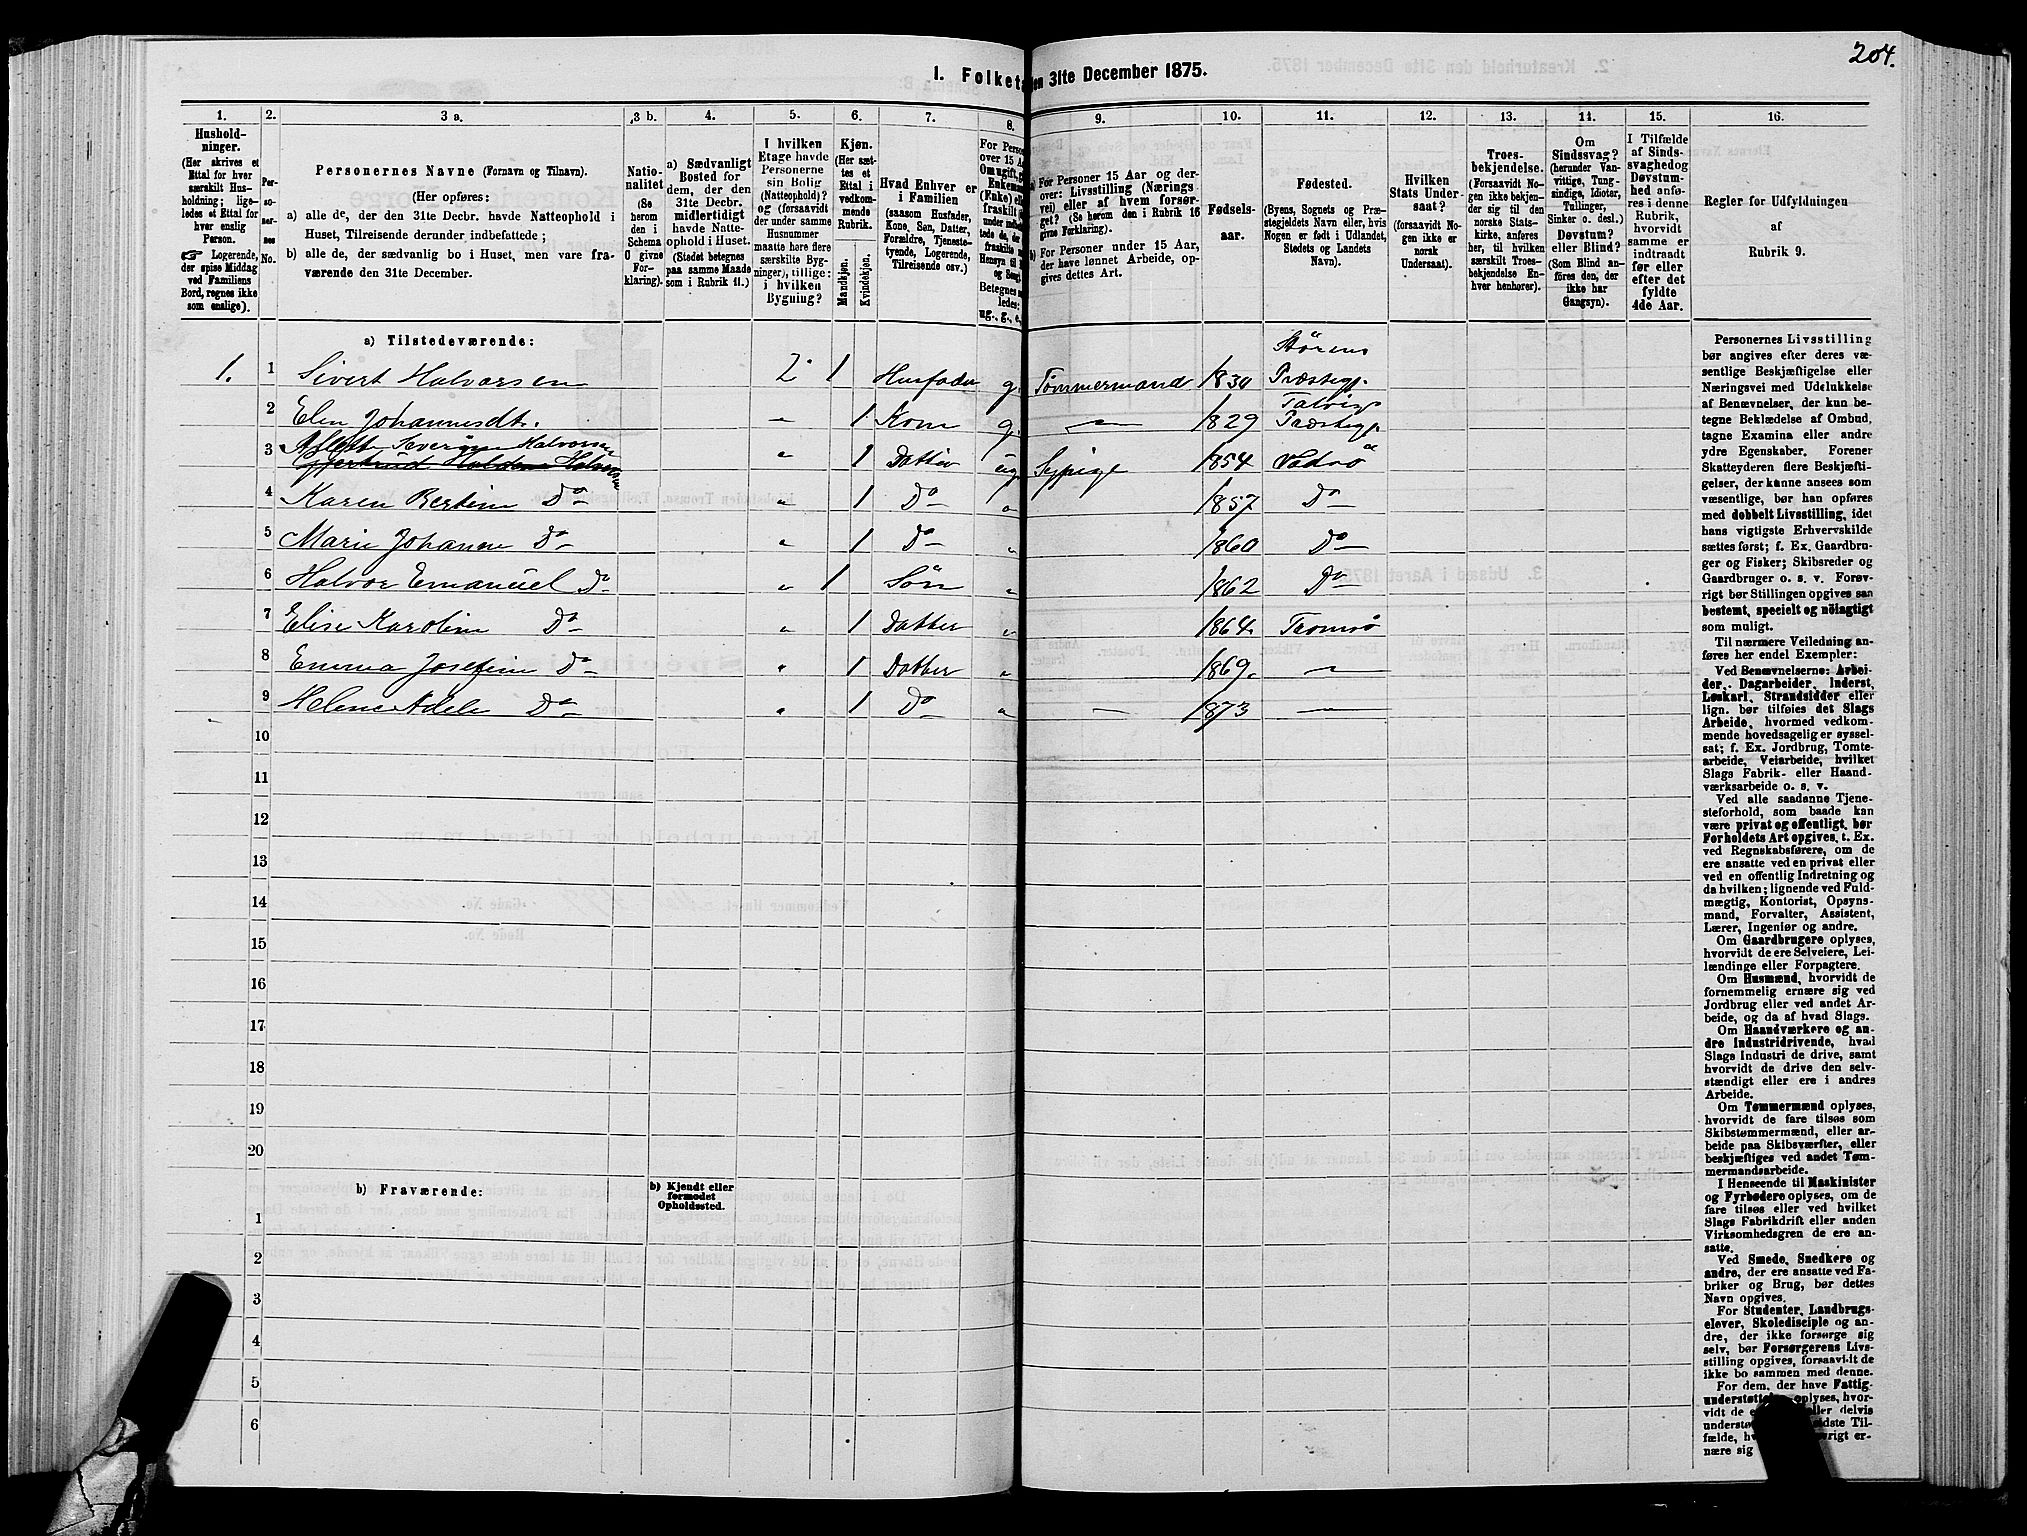 204.
1. Folketæ
den 31te December 1875.
1. 2. 3 a. 3 b. 4. 5. 6. 7. 8. 9. 10. 11. 12. 13. 14. 15. 16.
Hushold-
ninger.
(Her skrives et
Ettal for hver
særskilt Hus-
holdning; lige-
ledes et Ettal for
hver enslig
Person.
☞ Logerende,
der spise Middag
ved Familiens
Bord, regnes ikke
som enslige).
Per-
so-
ner-
nes
No.
Personernes Navne (Fornavn og Tilnavn).
(Her opføres:
a) alle de, der den 31te Decbr. havde Natteophold i
Huset, Tilreisende derunder indbefattede;
b) alle de, der sædvanlig bo i Huset, men vare fra-
værende den 31te December.
Natio-
nalitet
(Se
herom
den i
Schema
O givne
For-
klaring).
a) Sædvanligt
Bosted for
dem, der den
31te Decbr.
midlertidigt
havde Natte-
ophold i Huset.
(Stedet betegnes
paa samme Maade
som i Rubrik 11.)
I hvilken
Etage havde
Personerne
sin Bolig
(Natteophold)?
og (forsaavidt
der under samme
Husnummer
maatte høre flere
særskilte Byg-
ninger), tillige:
i hvilken
Bygning?
Kjøn.
(Her sæt-
tes et
Ettal i
vedkom-
mende
Rubrik.
Mandkjøn.
Kvindekjøn.
Hvad Enhver er
i Familien
(saasom Husfader,
Kone, Søn, Datter,
Forældre, Tjeneste-
tyende, Logerende,
Tilreisende osv.)
For Perso
over 15 A
Om ugift, g
Enkem
(Enke) ell
fraskilt
Betegnes
ledes:
ug., g., e.,
a) For Personer 15 Aar og der-
over: Livsstilling (Nærings-
vei) eller af hvem forsør-
get? (Se herom den i Rubrik 16
givne Forklaring).
b) For Personer under 15 Aar,
der have lønnet Arbeide, op-
gives dettes Art.
Fødsels-
aar.
Fødested.
(Byens, Sognets og Præ-
stegjeldets Navn eller, hvis
Nogen er født i Udlandet,
Stedets og Landets
Navn).
Hvilken
Stats Under-
saat?
(forsaavidt No-
gen ikke er
norsk
Undersaat).
Troes-
bekjendelse.
(Forsaavidt No-
gen ikke bekjen-
der sig til den
norske Stats-
kirke, anføres
her, til hvilken
særskilt Troes-
bekjendelse En-
hver henhører).
Om
Sindssvag?
(herunder Van-
vittige, Tung-
sindige, Idioter,
Tullinger,
Sinker o. desl.)
Døvstum?
eller Blind?
(Som Blind an-
føres den, der
ikke har
Gangsyn).
I Tilfælde
af Sinds-
svaghed og
Døvstum-
hed anfø-
res i denne
Rubrik,
hvorvidt
samme er
indtraadt
før eller
efter det
fyldte
4de Aar.
Regler for Udfyldningen
af
Rubrik 9.
a) Tilstedeværende:
1. 1 Sivert Halvorsen 2 1 Husfader g. Tømmermand 1830 Størens Præstegj.
2 Elen Johannesdt. " 1 Kone g. — 1829 Talvigs Præstegj.
3 Severine Halvorsen " 1 Datter ug Sypige 1854 Vadsø
4 Karen Bertine Do " 1 Do " 1857 Do
5 Marie Johanne Do " 1 Do " 1860 Do
6 Halvor Emanuel Do " 1 Søn " 1862 Do
7 Elise Karoline Do " 1 Datter " 1864. Tromsø
8 Emma Josefine Do " 1 Datter " 1869. —
9 Helene Adele Do " 1 Do " — 1873 —
10
11
12
13
14
15
16
17
18
19
20
b) Fraværende:
b) Kjendt eller
formodet
Opholdssted.
1
2
3
4
5
6
Personernes Livsstilling
bør angives efter deres væ-
sentlige Beskjæftigelse eller
Næringsvei med Udelukkelse
af Benævnelser, der kun be-
tegne Beklædelse af Ombud,
tagne Examina eller andre
ydre Egenskaber. Forener
Skatteyderen flere Beskjæfti-
gelser, der kunne ansees som
væsentlige, bør han opføres
med dobbelt Livsstilling, idet
hans vigtigste Erhvervskilde
sættes først; f. Ex. Gaardbru-
ger og Fisker; Skibsreder og
Gaardbruger o. s. v. Forøv-
rigt bør Stillingen opgives saa
bestemt, specielt og nöiagtigt
som muligt.
Til nærmere Veiledning an-
føres her endel Exempler:
Ved Benævnelserne: Arbei-
der, Dagarbeider, Inderst,
Løskarl, Strandsidder eller
lign. bør tilføies det Slags
Arbeide, hvormed vedkom-
mende hovedsagelig er syssel-
sat; f. Ex. Jordbrug, Tomte-
arbeide, Veiarbeide, hvilket
Slags Fabrik- eller Haand-
værksarbeide o. s. v.
Ved alle saadanne Tjene-
steforhold, som baade kan
være privat og offentligt, bør
Forholdets Art opgives, t. Ex.
ved Regnskabsførere, om de
ere ansatte ved en privat eller
ved en offentlig Indretning og
da hvilken; lignende ved Fuld-
mægtig, Kontorist, Opsyns-
mand, Forvalter, Assistent,
Lærer, Ingeniør og andre.
Om Gaardbrugere oplyses,
hvorvidt de ere Selveiere, Lei-
lændinge eller Forpagtere.
Om Husmænd, hvorvidt de
fornemmelig ernære sig ved
Jordbrug eller ved andet Ar-
beide, og da af hvad Slags.
Om Haandværkere og an-
dre Industridrivende, hvad
Slags Industri de drive, samt
hvorvidt de drive den selv-
stændigt eller ere i andres
Arbeide.
Om Tømmermænd oplyses,
hvorvidt de fare tilsøs som
Skibstømmermænd, eller ar-
beide paa Skibsværfter, eller
beskjæftiges ved andet Tøm-
mermandsarbeide.
I Henseende til Maskinister
og Fyrbødere oplyses, om de
fare tilsøs eller ved hvilket
Slags Fabrikdrift eller anden
Virksomhedsgren de ere an-
satte.
Ved Smede, Snedkere og
andre, der ere ansatte ved Fa-
briker og Brug, bør dettes
Navn opgives.
For Studenter, Landbrugs-
elever, Skoledisciple og an-
dre, der ikke forsørge sig
selv, bør Forsørgerens Livs-
stilling opgives, forsaavidt de
ikke bo sammen med denne.
For dem, der have Fattig-
understøttelse, oplyses, hvor-